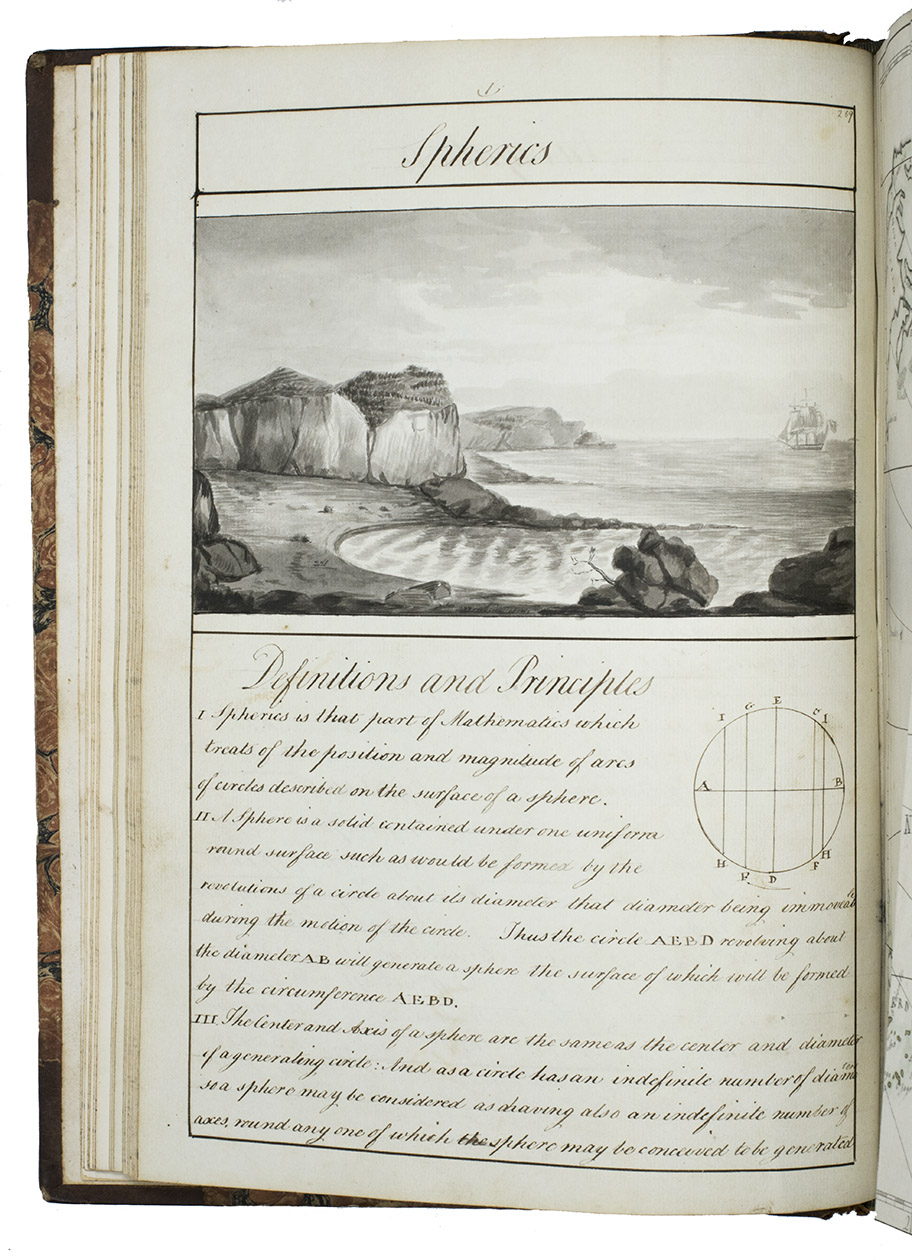 289
Spherics
Definitions and Principles
I Spherics is that part of Mathematics which
treats of the position and magnitude of arcs
of circles described on the surface of a sphere.
II A Sphere is a solid contained under one uniform
round surface such as would be formed by the
revolutions of a circle about its diameter that diameter being immoveable
during the motion of the circle. Thus the circle AEBD revolving about
the diameter AB will generate a sphere the surface of which will be formed
by the circumference AEBD.
III The Center and Axis of a sphere are the same as the center and diameter
of a generating circle: And as a circle has an indefinite number of diameters
so a sphere may be considered as having also an indefinite number of
axes, round any one of which the sphere may be conceived to be generated
I G E G I
A B
H F D F H